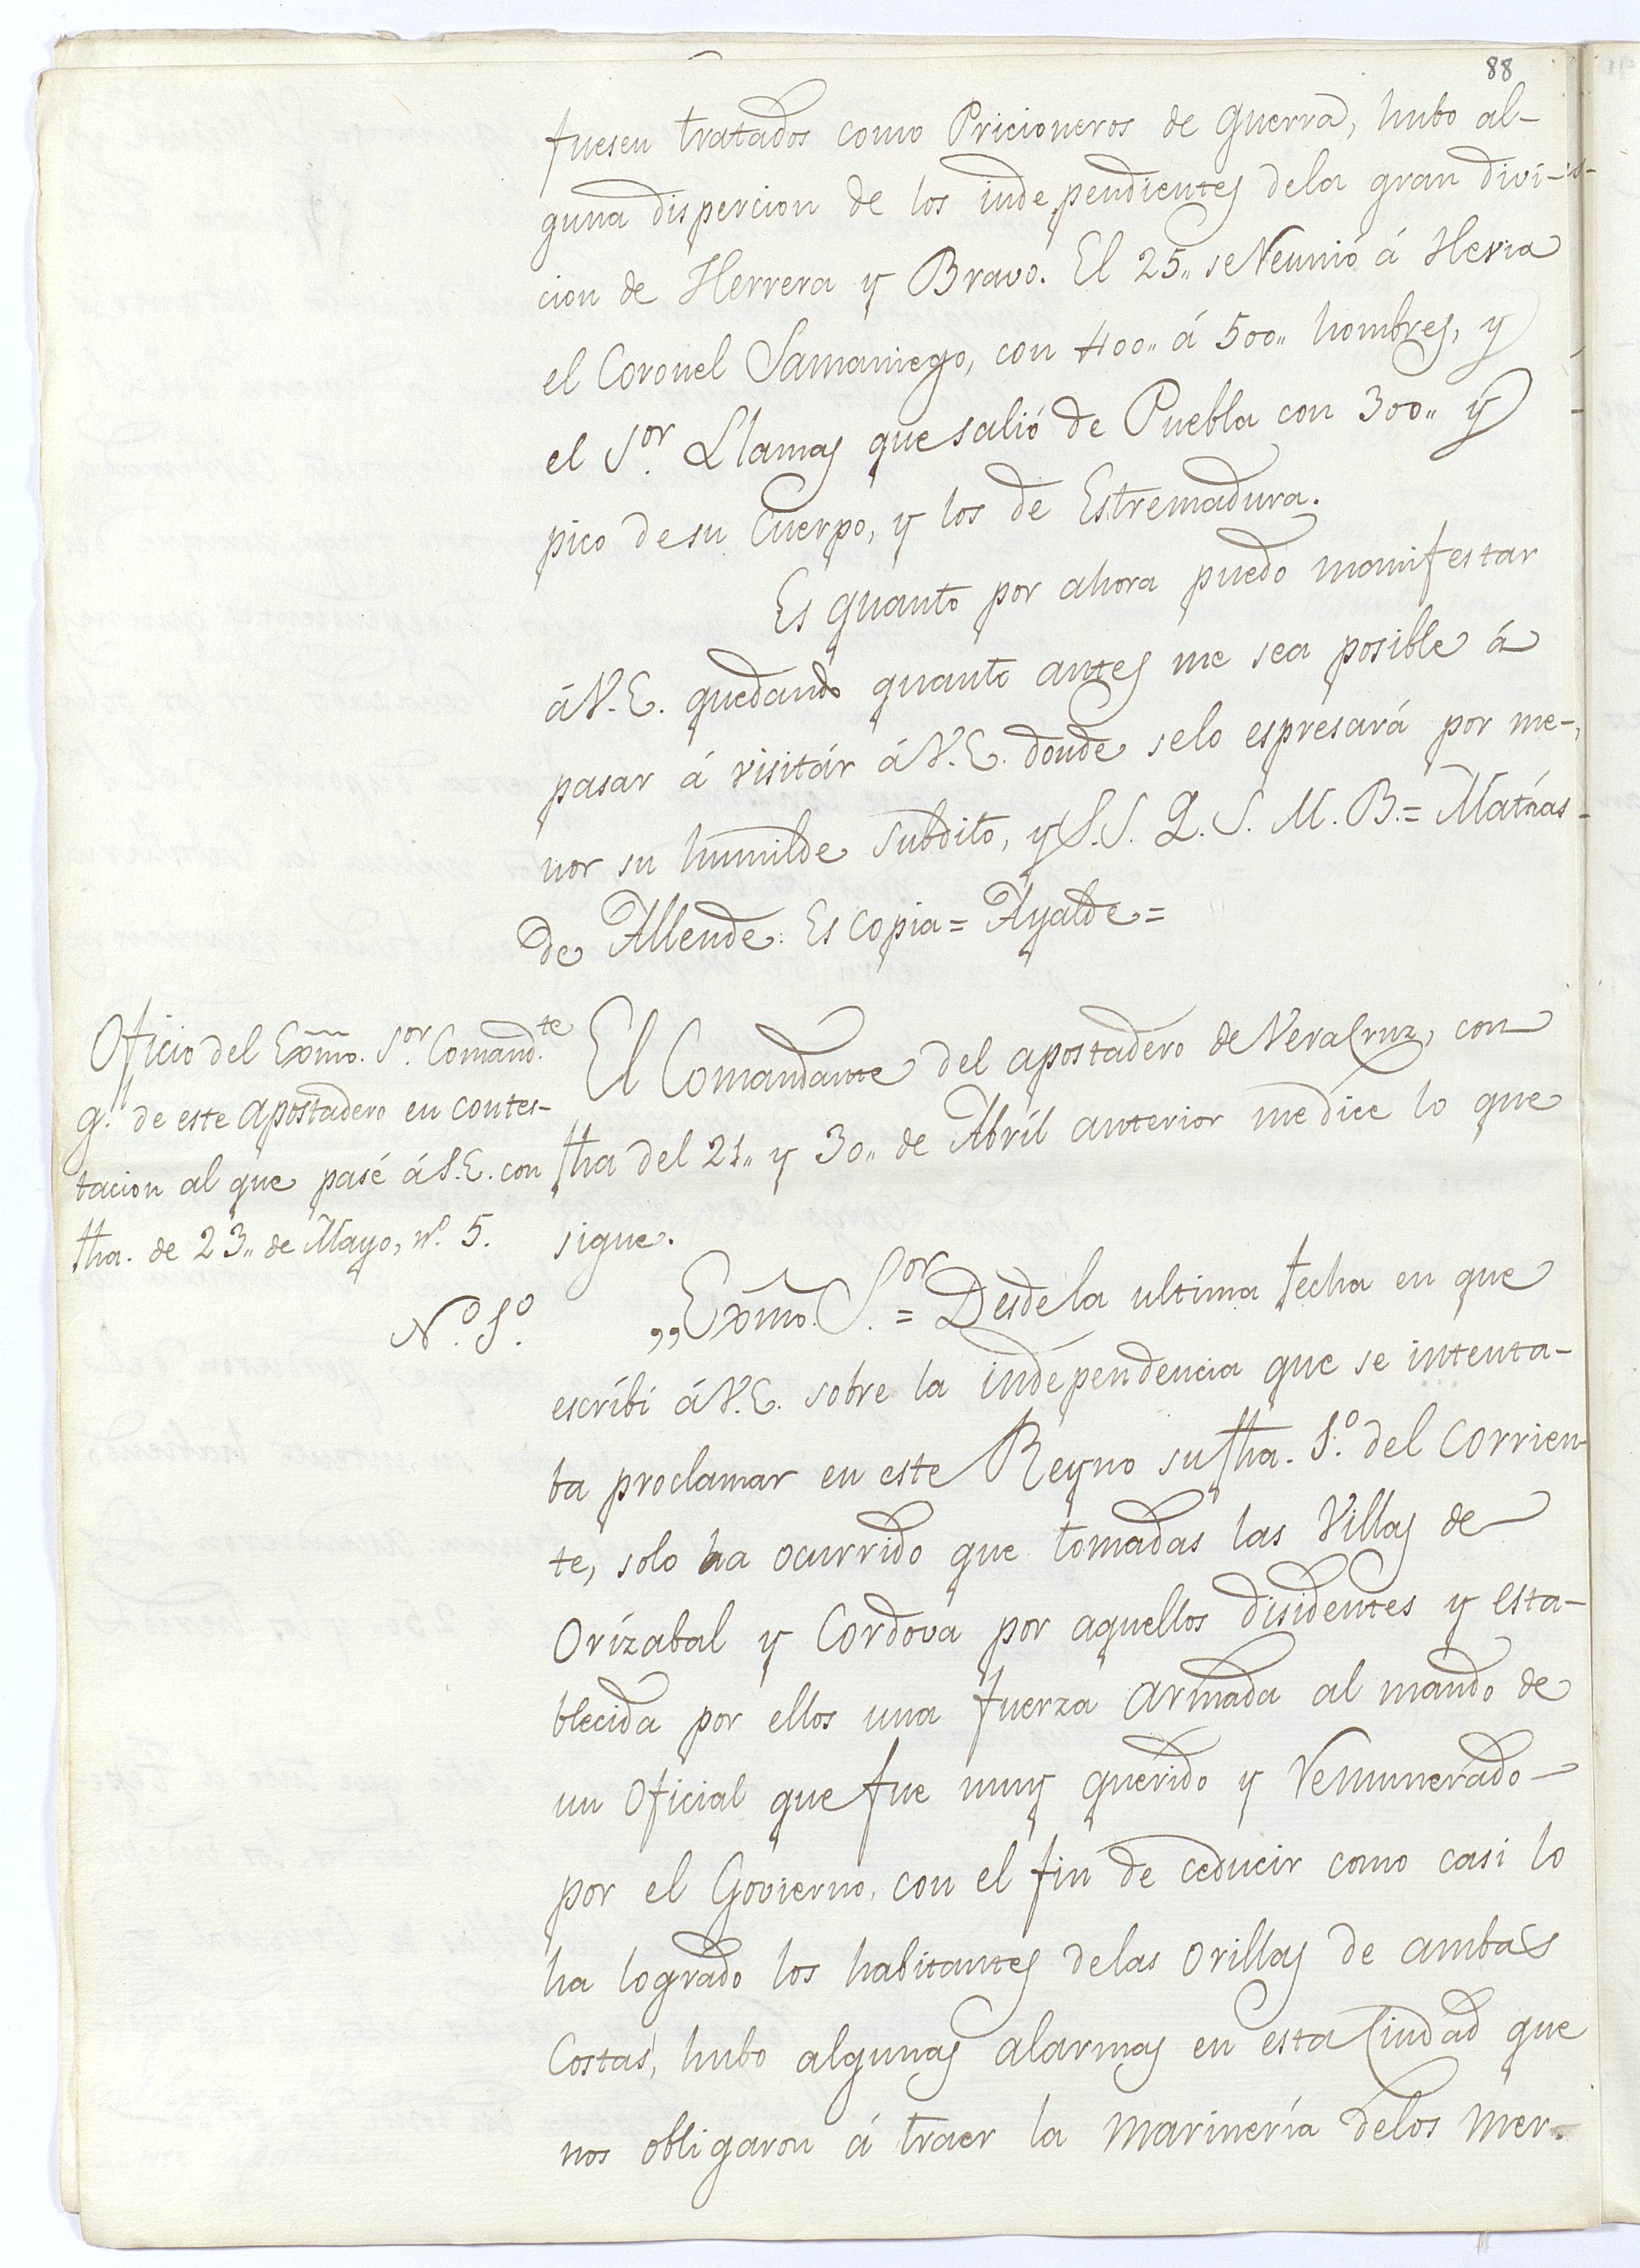 88
fuesen tratados como Pricioneros de Guerra, hubo al-
guna dispercion de los independientes dela gran divi-
cion de Herrera y Bravo. El 25,, se Reunió á Hevia
el Coronel Samaniego, con 400,, á 500,, hombres, y
el S.or Llamas que salió de Puebla con 300,, y
pico de su Cuerpo, y los de Estremadura.
Es quanto por ahora puedo manifestar
á V.E. quedando quanto antes me sea posible á
pasar á visitár á V.E. donde selo espresará por me-
nor su humilde Subdito, y S.S. Q. S. M. B.= Matías
de Allende: Es copia = Ayalde =
Oficio del Exmo. S.or Comand.te
g.l de este apostadero en contes-
tacion al que pasé á S.E. con
fha. de 23,, de Mayo, n.o 5.
N.o 1.o
El Comandante del apostadero de VeraCruz, con
fha del 21,, y 30,, de Abríl anterior me dice lo que
sigue.
,,Exmo. S.or = Desde la ultima fecha en que
escríbi á V.E. sobre la independencia que se intenta-
ba proclamar en este Reyno su fha. 1.o del Corrien-
te, solo ha ocurrido que tomadas las Villas de
Orízabal y Cordova por aquellos disidentes y esta-
blecida por ellos una fuerza armada al mando de
un Oficial que fue muy querido y Remunerado
por el Govierno, con el fin de ceducir como casi lo
ha logrado los habitantes delas orillas de ambas
Costas, hubo algunas alarmas en esta Ciudad que
nos obligaron á traer la marinería delos Mer-